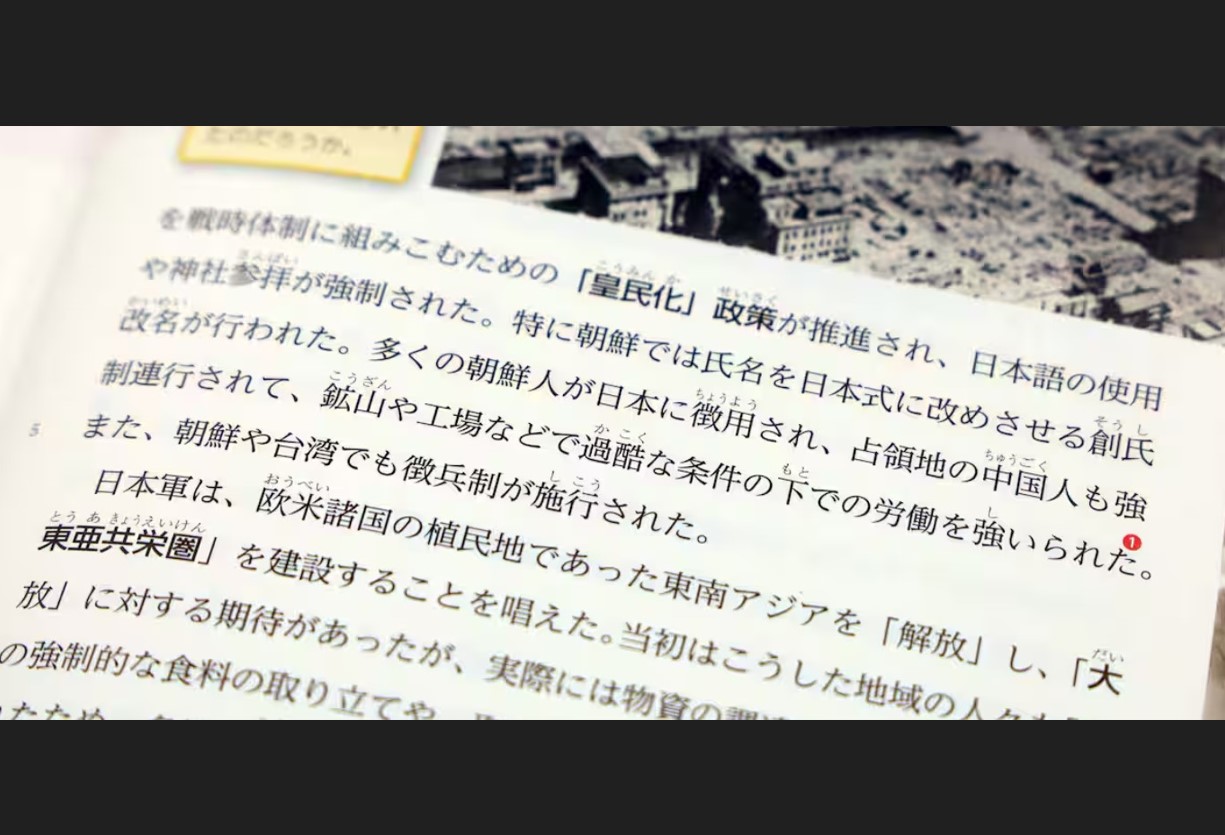 たのだろうか。
を戦時体制に組みこむための「皇民化」政策が推進され、日本語の使用
や神社参拝が強制された。特に朝鮮では氏名を日本式に改めさせる創氏
改名が行われた。多くの朝鮮人が日本に徴用され、占領地の中国人も強
制連行されて、鉱山や工場などで過酷な条件の下での労働を強いられた。❶
5 また、朝鮮や台湾でも徴兵制が施行された。
日本軍は、欧米諸国の植民地であった東南アジアを「解放」し、「大
東亜共栄圏」を建設することを唱えた。当初はこうした地域の人々も「
放」に対する期待があったが、実際には物資の調達
の強制的な食料の取り立てや、